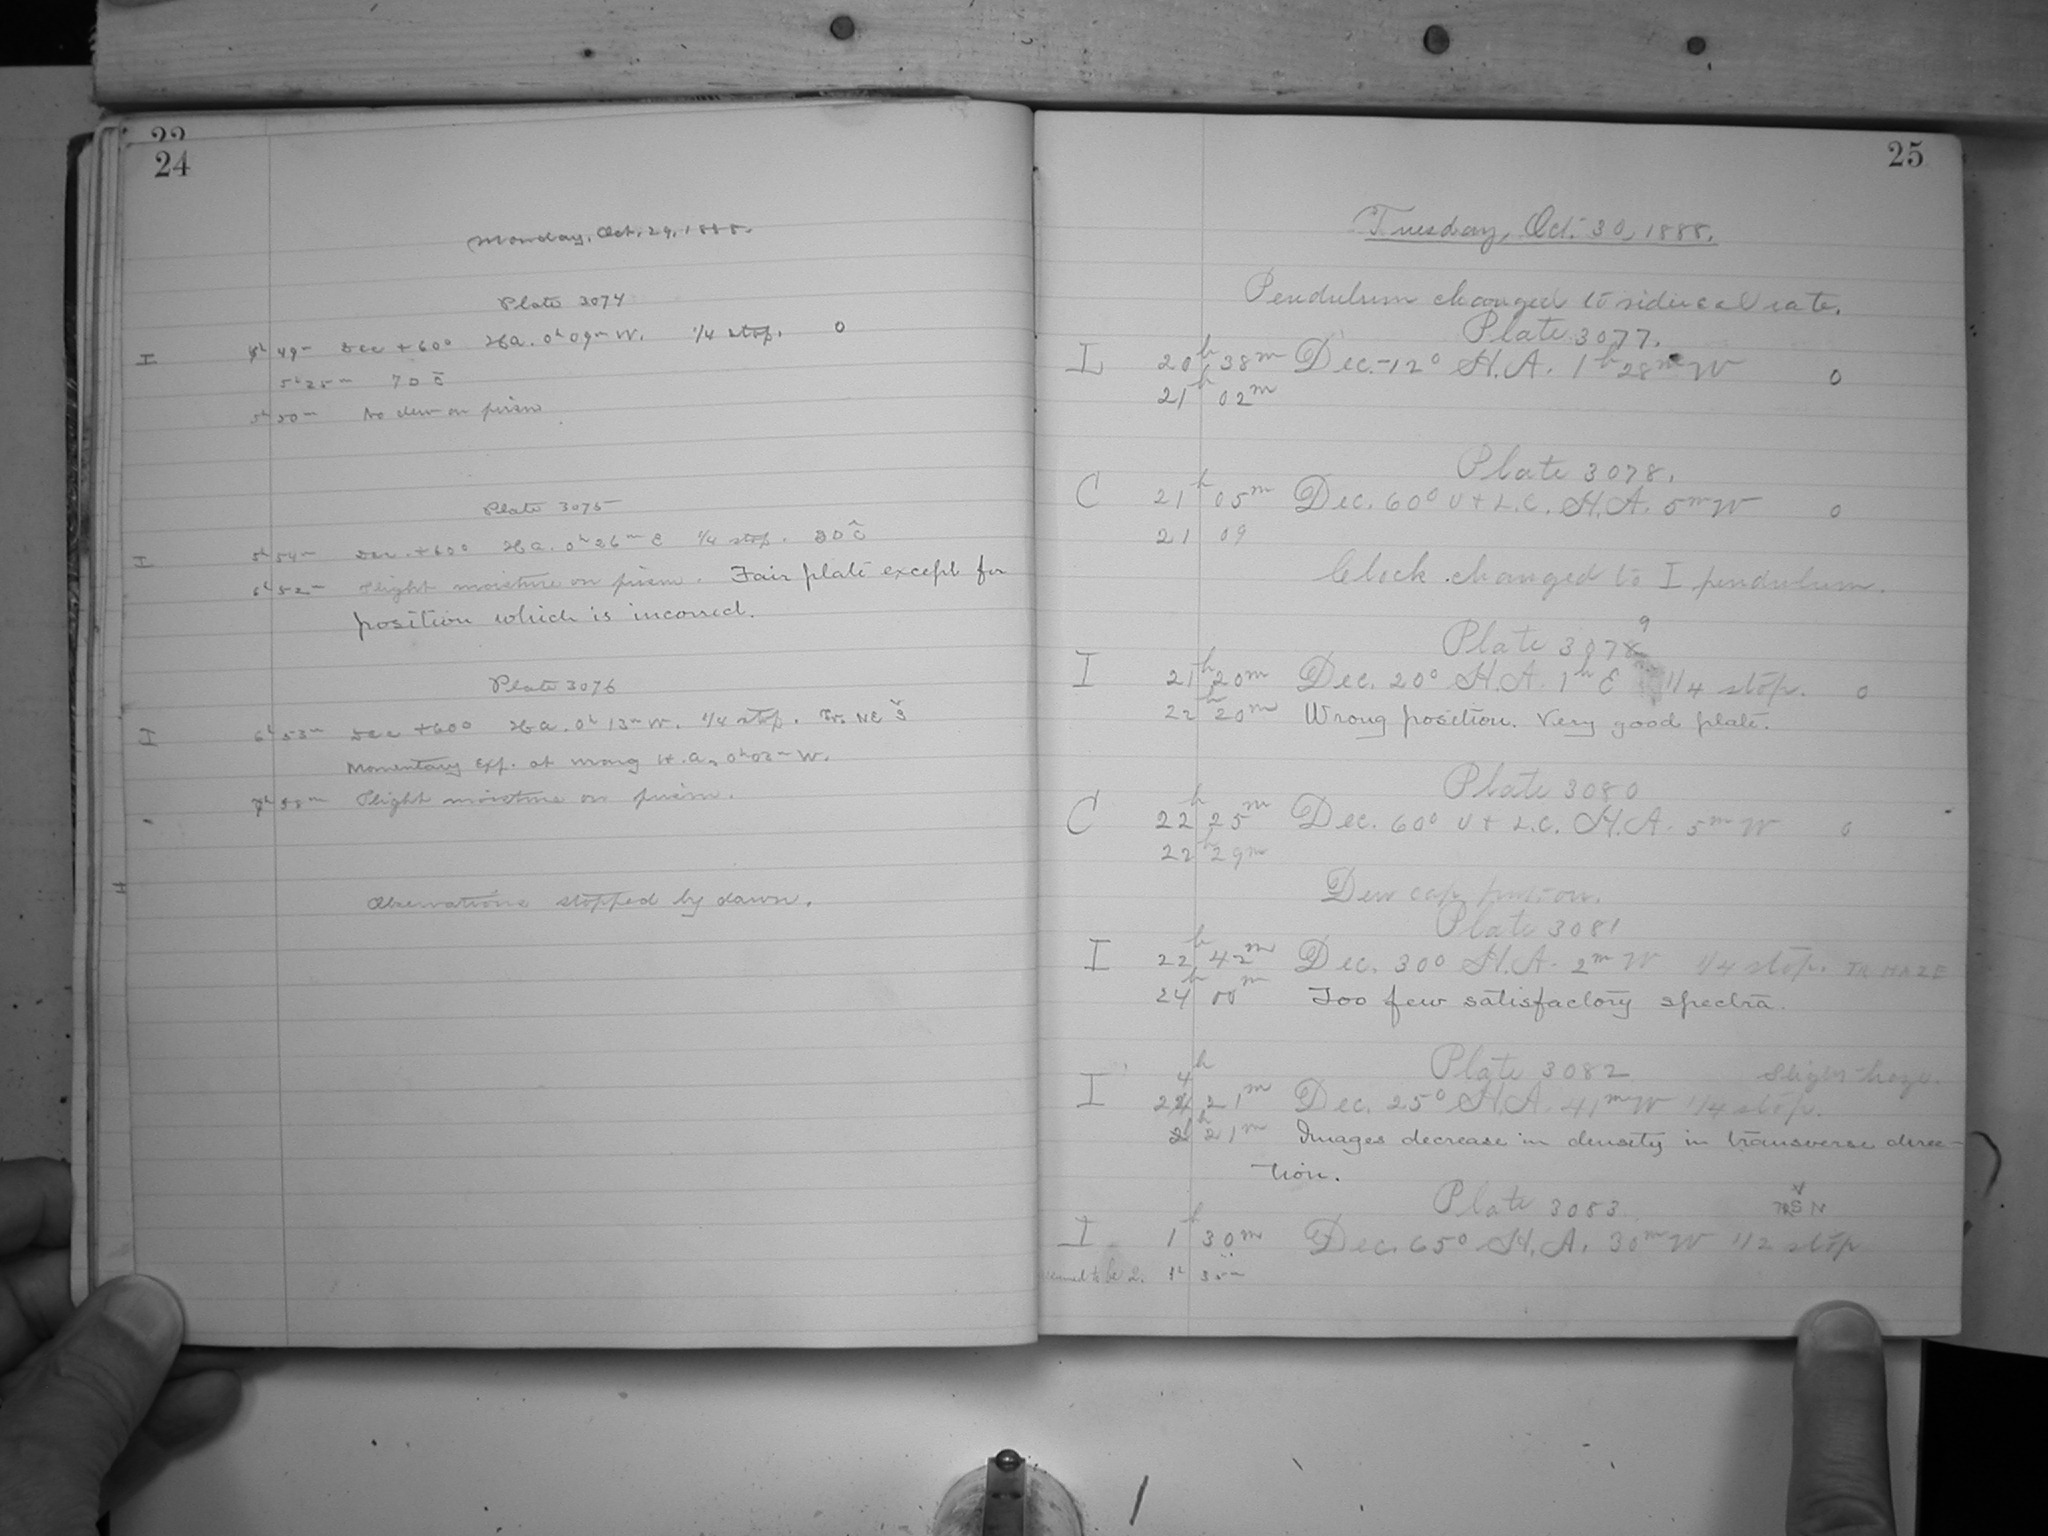 22
24
Monday, Oct. 29, 1888.
Plate 3074
I 4h 49m Dec +60° H.a. 0h 09m W. 1/4 stop. 0
5h 25m
5h 50m No dew on prism
Plate 3075
I 5h 54m Dec. +60° H.a. 0h 26m E 1/4 stop.
6h 52m Slight moisture on prism. Fair plate except for
position which is incorrect.
Plate 3076
I 6h 53m Dec +60° H.a. 0h 13m W. 1/4 stop.
Momentary Exp. at wrong H.a. 0h 02m W.
Slight moisture on prism.
Observations stopped by dawn.
25
Tuesday, Oct. 30, 1888.
Pendulum changed to sidereal rate.
Plate 3077.
I 20h 38m Dec. -12° H.A. 1h 28m W 0
21h 02m
Plate 3078.
C 21h 05m Dec. 60° U + L.C. H.A. 5m W 0
21 09
Clock changed to I pendulum.
Plate 3079
I 21h 20m Dec. 20° H.A. 1h E 1/4 stop. 0
22h 20m Wrong position. Very good plate.
Plate 3080
C 22h 25m Dec. 60° U + L.C. H.A. 5m W 0
22h 29m
Dew cap put on.
Plate 3081
I 22h 42m Dec. 30° H.A. 2m W 1/4 stop. TR HAZE
24h 00m Too few satisfactory spectra.
Plate 3082 Slight haze.
I 21m Dec. 25° H.A. 41m W 1/4 stop.
21m Images decrease in density in transverse direc-
tion.
Plate 3083
I 1h 30m Dec. 65° H.A. 30m W 1/2 stop
to be 2. 1h 35m